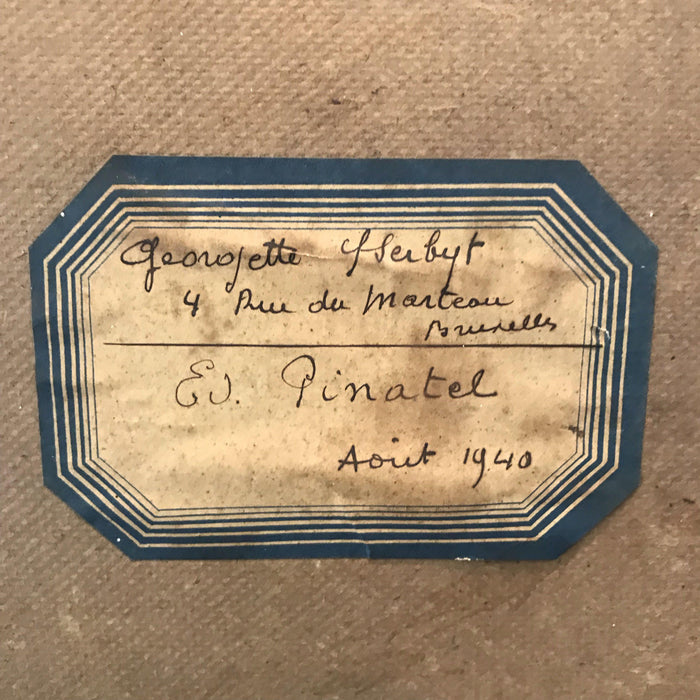 Georgette Yserbyt
4 Rue du Marteau
Bruxelles
Ed. Pinatel
Août 1940